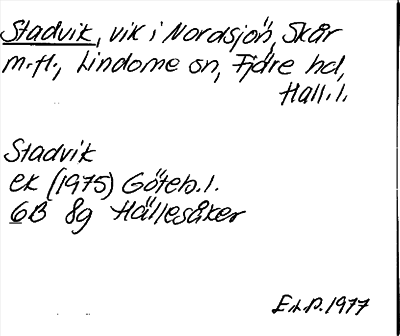 Stadvik, vik i Nordsjön, Skår
m.fl., Lindome sn, Fjäre hd,
Hall.l.
Stadvik
ek (1975) Göteb.l.
6B 8g Hällesåker
E.t.P. 1977